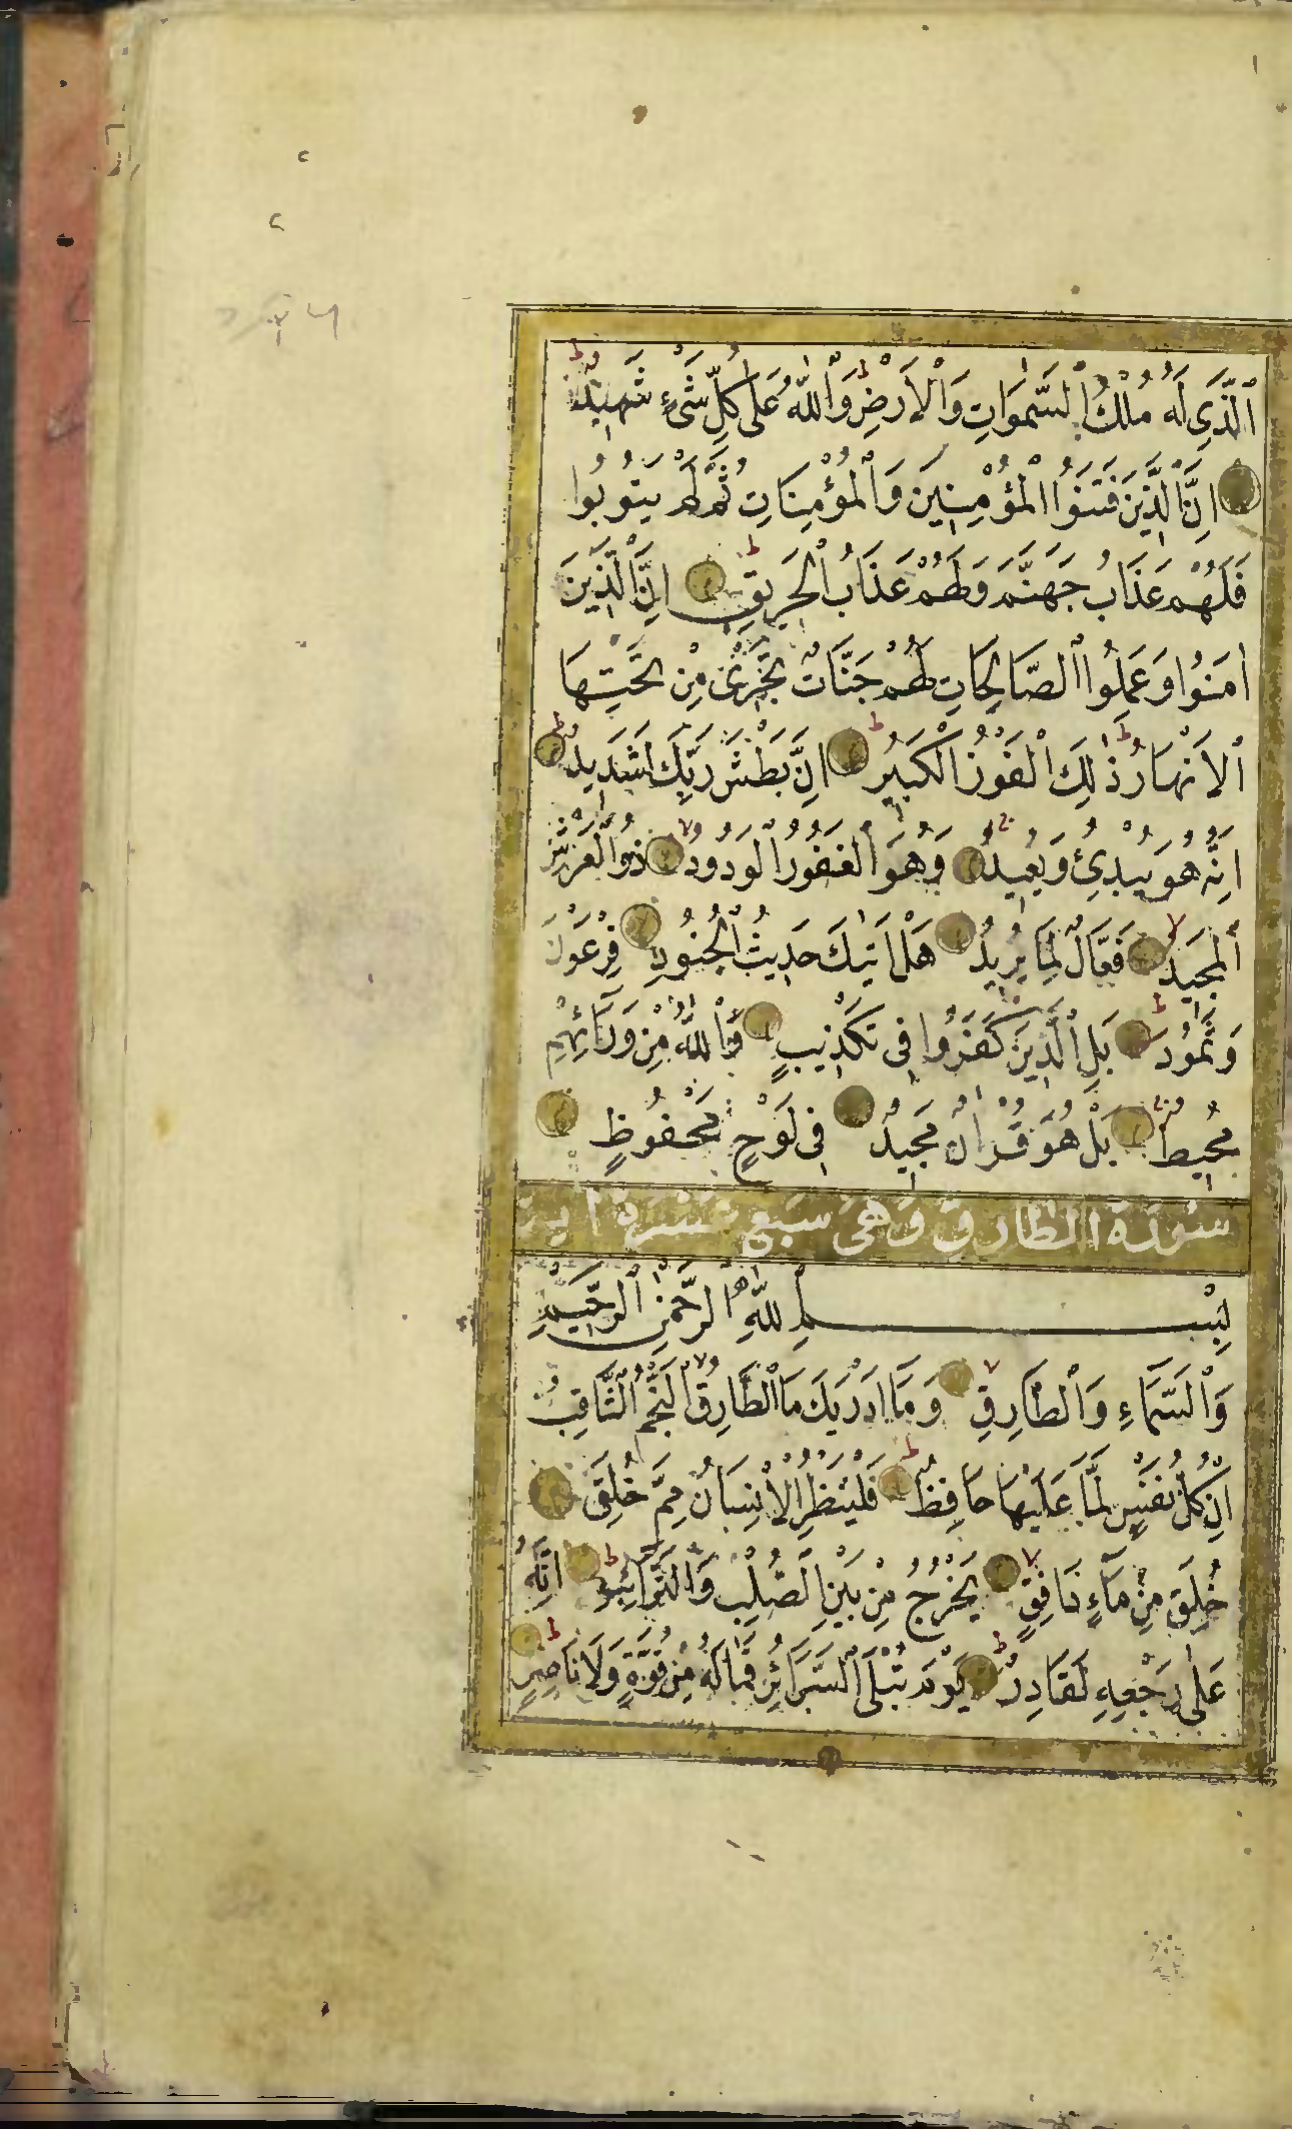 اَلَّذِي لَهُ مُلْكُ السَّمٰوَاتِ وَالْاَرْضِ وَاللّٰهُ عَلٰى كُلِّ شَيْءٍ شَهِيدٌ
اِنَّ الَّذِينَ فَتَنُوا الْمُؤْمِنِينَ وَالْمُؤْمِنَاتِ ثُمَّ لَمْ يَتُوبُوا
فَلَهُمْ عَذَابُ جَهَنَّمَ وَلَهُمْ عَذَابُ الْحَرِيقِ اِنَّ الَّذِينَ
اٰمَنُوا وَعَمِلُوا الصَّالِحَاتِ لَهُمْ جَنَّاتٌ تَجْرِي مِنْ تَحْتِهَا
الْاَنْهَارُ ذٰلِكَ الْفَوْزُ الْكَبِيرُ اِنَّ بَطْشَ رَبِّكَ لَشَدِيدٌ
اِنَّهُ هُوَ يُبْدِئُ وَيُعِيدُ وَهُوَ الْغَفُورُ الْوَدُودُ ذُو الْعَرْشِ
الْمَجِيدُ فَعَّالٌ لِمَا يُرِيدُ هَلْ اَتٰيكَ حَدِيثُ الْجُنُودِ فِرْعَوْنَ
وَثَمُودَ بَلِ الَّذِينَ كَفَرُوا فِي تَكْذِيبٍ وَاللّٰهُ مِنْ وَرَائِهِمْ
مُحِيطٌ بَلْ هُوَ قُرْاٰنٌ مَجِيدٌ فِي لَوْحٍ مَحْفُوظٍ
سورة الطارق وهى سبع عشرة اية
بِسْمِ اللّٰهِ الرَّحْمٰنِ الرَّحِيمِ
وَالسَّمَاءِ وَالطَّارِقِ وَمَا اَدْرٰيكَ مَا الطَّارِقُ النَّجْمُ الثَّاقِبُ
اِنْ كُلُّ نَفْسٍ لَمَّا عَلَيْهَا حَافِظٌ فَلْيَنْظُرِ الْاِنْسَانُ مِمَّ خُلِقَ
خُلِقَ مِنْ مَاءٍ دَافِقٍ يَخْرُجُ مِنْ بَيْنِ الصُّلْبِ وَالتَّرَائِبِ اِنَّهُ
عَلٰى رَجْعِهِ لَقَادِرٌ يَوْمَ تُبْلَى السَّرَائِرُ فَمَا لَهُ مِنْ قُوَّةٍ وَلَا نَاصِرٍ